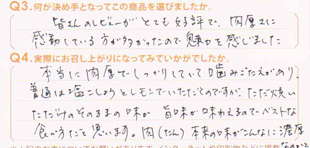 Q3.何が決め手となってこの商品を選びましたか。
皆さんのレビューがとても好評で、肉厚さに
感動している方が多かったので魅力を感じました
Q4.実際にお召し上がりになってみていかがでしたか。
本当に肉厚でしっかりしていて噛みごたえがあり、
普通は塩こしょうとレモンでいただいてたのですが、ただ焼い
ただけのそのままの味が 旨味が味わえるのでベストな
食べ方だと思います。肉(たん)本来の味がこんなに濃厚